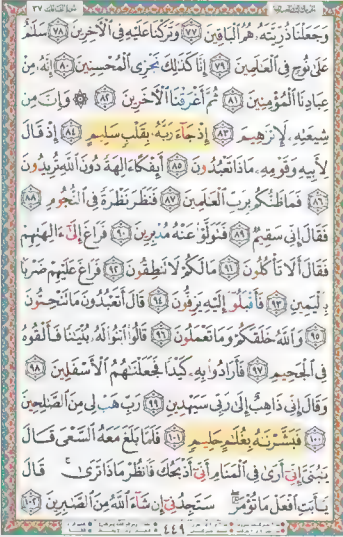 وَجَعَلْنَا ذُرِّيَّتَهُۥ هُمُ ٱلْبَاقِينَ ٧٧ وَتَرَكْنَا عَلَيْهِ فِى ٱلْـَٔاخِرِينَ ٧٨ سَلَٰمٌ
عَلَىٰ نُوحٍ فِى ٱلْعَٰلَمِينَ ٧٩ إِنَّا كَذَٰلِكَ نَجْزِى ٱلْمُحْسِنِينَ ٨٠ إِنَّهُۥ مِنْ
عِبَادِنَا ٱلْمُؤْمِنِينَ ٨١ ثُمَّ أَغْرَقْنَا ٱلْـَٔاخَرِينَ ٨٢ ۞ وَإِنَّ مِن
شِيعَتِهِۦ لَإِبْرَٰهِيمَ ٨٣ إِذْ جَآءَ رَبَّهُۥ بِقَلْبٍ سَلِيمٍ ٨٤ إِذْ قَالَ
لِأَبِيهِ وَقَوْمِهِۦ مَاذَا تَعْبُدُونَ ٨٥ أَئِفْكًا ءَالِهَةً دُونَ ٱللَّهِ تُرِيدُونَ
٨٦ فَمَا ظَنُّكُم بِرَبِّ ٱلْعَٰلَمِينَ ٨٧ فَنَظَرَ نَظْرَةً فِى ٱلنُّجُومِ ٨٨
فَقَالَ إِنِّى سَقِيمٌ ٨٩ فَتَوَلَّوْا۟ عَنْهُ مُدْبِرِينَ ٩٠ فَرَاغَ إِلَىٰٓ ءَالِهَتِهِمْ
فَقَالَ أَلَا تَأْكُلُونَ ٩١ مَا لَكُمْ لَا تَنطِقُونَ ٩٢ فَرَاغَ عَلَيْهِمْ ضَرْبًۢا
بِٱلْيَمِينِ ٩٣ فَأَقْبَلُوٓا۟ إِلَيْهِ يَزِفُّونَ ٩٤ قَالَ أَتَعْبُدُونَ مَا تَنْحِتُونَ
٩٥ وَٱللَّهُ خَلَقَكُمْ وَمَا تَعْمَلُونَ ٩٦ قَالُوا۟ ٱبْنُوا۟ لَهُۥ بُنْيَٰنًا فَأَلْقُوهُ
فِى ٱلْجَحِيمِ ٩٧ فَأَرَادُوا۟ بِهِۦ كَيْدًا فَجَعَلْنَٰهُمُ ٱلْأَسْفَلِينَ ٩٨
وَقَالَ إِنِّى ذَاهِبٌ إِلَىٰ رَبِّى سَيَهْدِينِ ٩٩ رَبِّ هَبْ لِى مِنَ ٱلصَّٰلِحِينَ
١٠٠ فَبَشَّرْنَٰهُ بِغُلَٰمٍ حَلِيمٍ ١٠١ فَلَمَّا بَلَغَ مَعَهُ ٱلسَّعْىَ قَالَ
يَٰبُنَىَّ إِنِّىٓ أَرَىٰ فِى ٱلْمَنَامِ أَنِّىٓ أَذْبَحُكَ فَٱنظُرْ مَاذَا تَرَىٰ ۚ قَالَ
يَٰٓأَبَتِ ٱفْعَلْ مَا تُؤْمَرُ ۖ سَتَجِدُنِىٓ إِن شَآءَ ٱللَّهُ مِنَ ٱلصَّٰبِرِينَ ١٠٢
٤٤٩